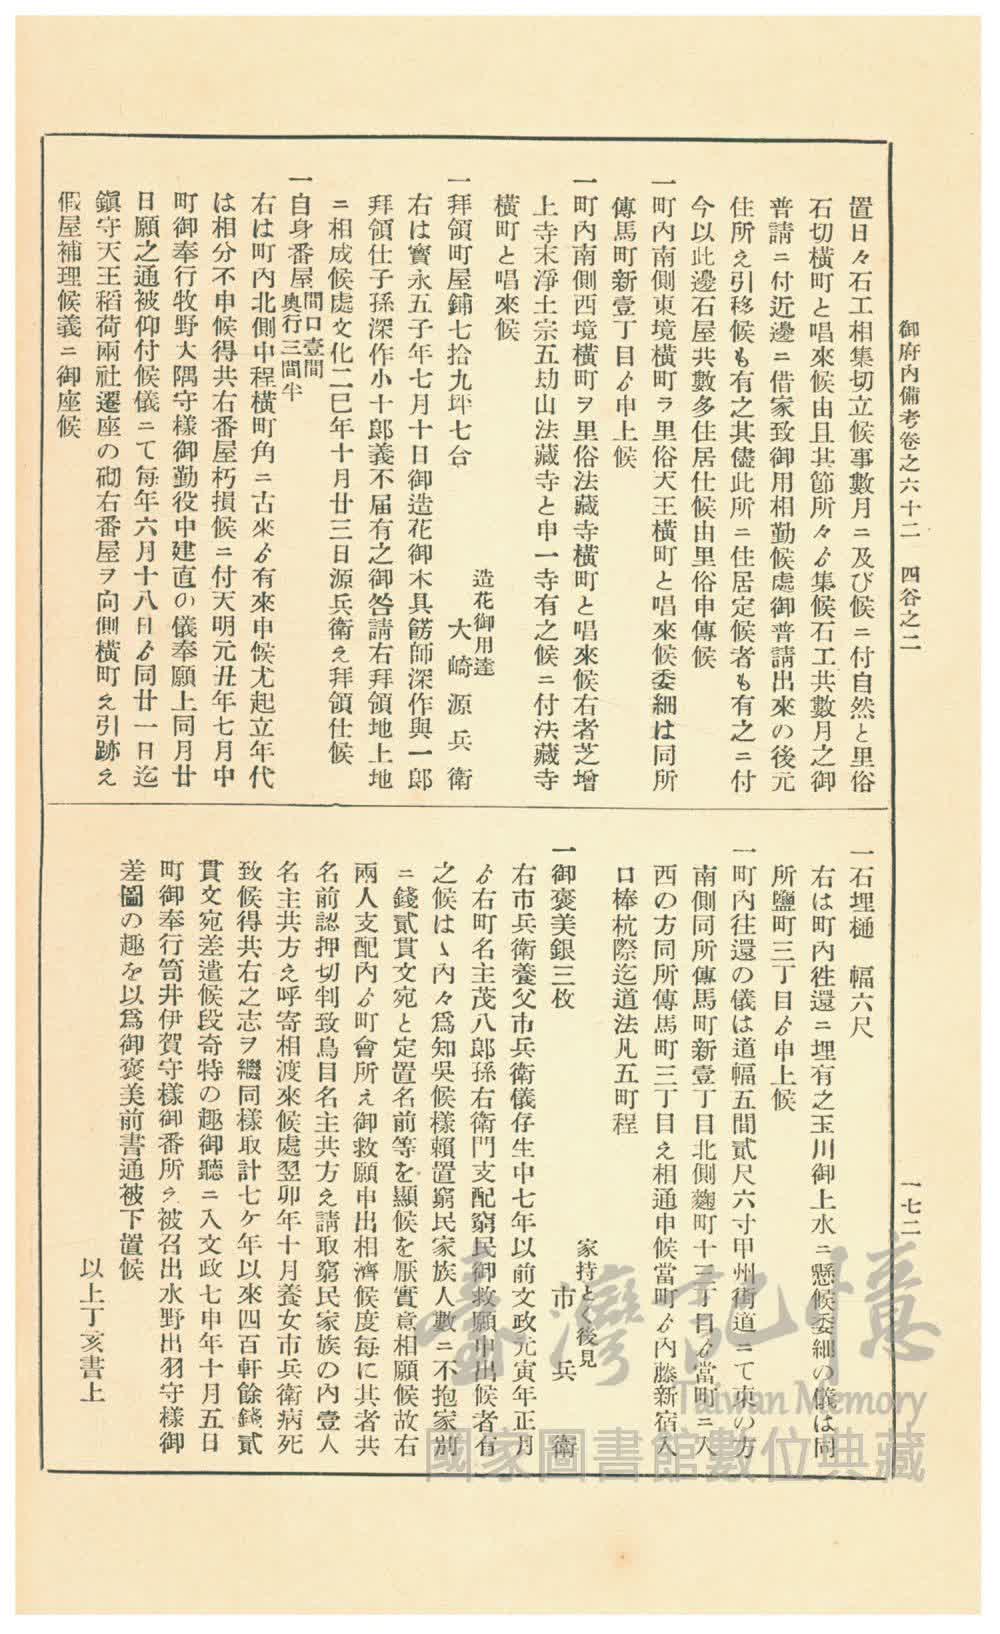 御府内備考卷之六十二　四谷之二
一七二
置日々石工相集切立候事數月ニ及び候ニ付自然と里俗
石切橫町と唱來候由且其節所々ゟ集候石工共數月之御
普請ニ付近邊ニ借家致御用相勤候處御普請出來の後元
住所え引移候も有之其儘此所ニ住居定候者も有之ニ付
今以此邊石屋共數多住居仕候由里俗申傳候
一町內南側東境橫町ヲ里俗天王橫町と唱來候委細は同所
傳馬町新壹丁目ゟ申上候
一町內南側西境橫町ヲ里俗法藏寺橫町と唱來候右者芝增
上寺末淨土宗五劫山法藏寺と申一寺有之候ニ付法藏寺
橫町と唱來候
造花御用達
一拜領町屋鋪七拾九坪七合　大崎源兵衛
右は寶永五子年七月十日御造花御木具餝師深作與一郎
拜領仕子孫深作小十郎義不届有之御咎請右拜領地上地
ニ相成候處文化二巳年十月廿三日源兵衛え拜領仕候
一自身番屋間口壹間奧行三間半
右は町內北側中程橫町角ニ古來ゟ有來申候尤起立年代
は相分不申候得共右番屋朽損候ニ付天明元丑年七月中
町御奉行牧野大隅守樣御勤役中建直の儀奉願上同月廿
日願之通被仰付候儀ニて每年六月十八日ゟ同廿一日迄
鎭守天王稻荷兩社遷座の砌右番屋ヲ向側橫町え引跡え
假屋補理候義ニ御座候
一石埋樋　幅六尺
右は町內徃還ニ埋有之玉川御上水ニ懸候委細の儀は同
所鹽町三丁目ゟ申上候
一町內往還の儀は道幅五間貳尺六寸甲州街道ニて東の方
南側同所傳馬町新壹丁目北側麴町十三丁目ゟ當町ニ入
西の方同所傳馬町三丁目え相通申候當町ゟ內藤新宿入
口棒杭際迄道法凡五町程
家持とく後見
一御褒美銀三枚　市兵衛
右市兵衛養父市兵衛儀存生中七年以前文政元寅年正月
ゟ右町名主茂八郎孫右衛門支配窮民御救願申出候者有
之候はゝ內々爲知吳候樣賴置窮民家族人數ニ不抱家別
ニ錢貳貫文宛と定置名前等を顯候を厭實意相願候故右
兩人支配內ゟ町會所え御救願申出相濟候度每に其者共
名前認押切判致鳥目名主共方え請取窮民家族の內壹人
名主共方え呼寄相渡來候處翌卯年十月養女市兵衛病死
致候得共右之志ヲ繼同樣取計七ケ年以來四百軒餘錢貳
貫文宛差遣候段奇特の趣御聽ニ入文政七申年十月五日
町御奉行筒井伊賀守樣御番所え被召出水野出羽守樣御
差圖の趣を以爲御褒美前書通被下置候
以上丁亥書上
臺灣記憶
Taiwan Memory
國家圖書館數位典藏